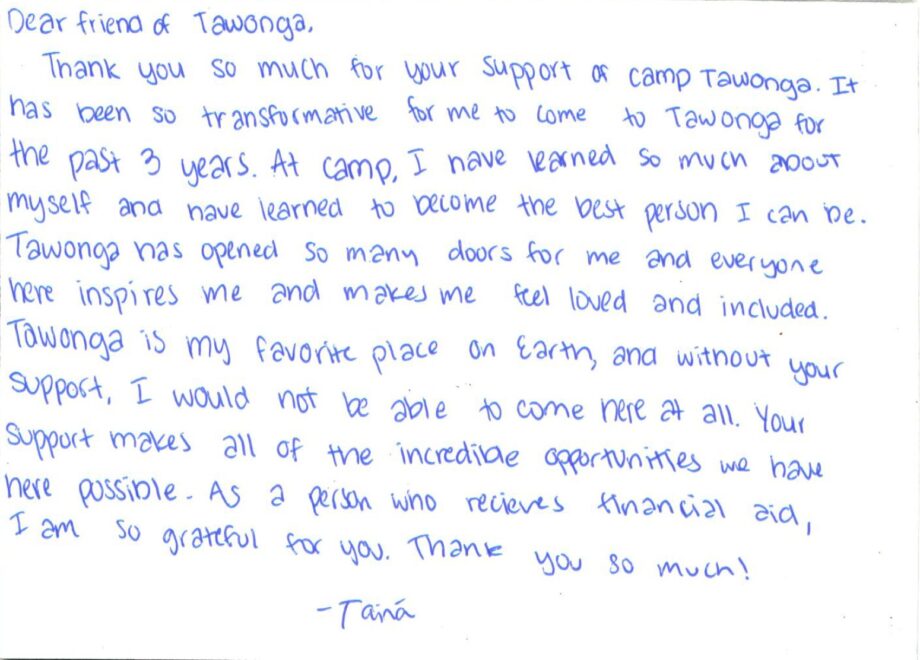 Dear friend of Tawonga,
Thank you so much for your support of camp Tawonga. It
has been so transformative for me to come to Tawonga for
the past 3 years. At camp, I have learned so much about
myself and have learned to become the best person I can be.
Tawonga has opened so many doors for me and everyone
here inspires me and makes me feel loved and included.
Tawonga is my favorite place on Earth, and without your
support, I would not be able to come here at all. Your
support makes all of the incredible opportunities we have
here possible. As a person who recieves financial aid,
I am so grateful for you. Thank you so much!
- Tainá